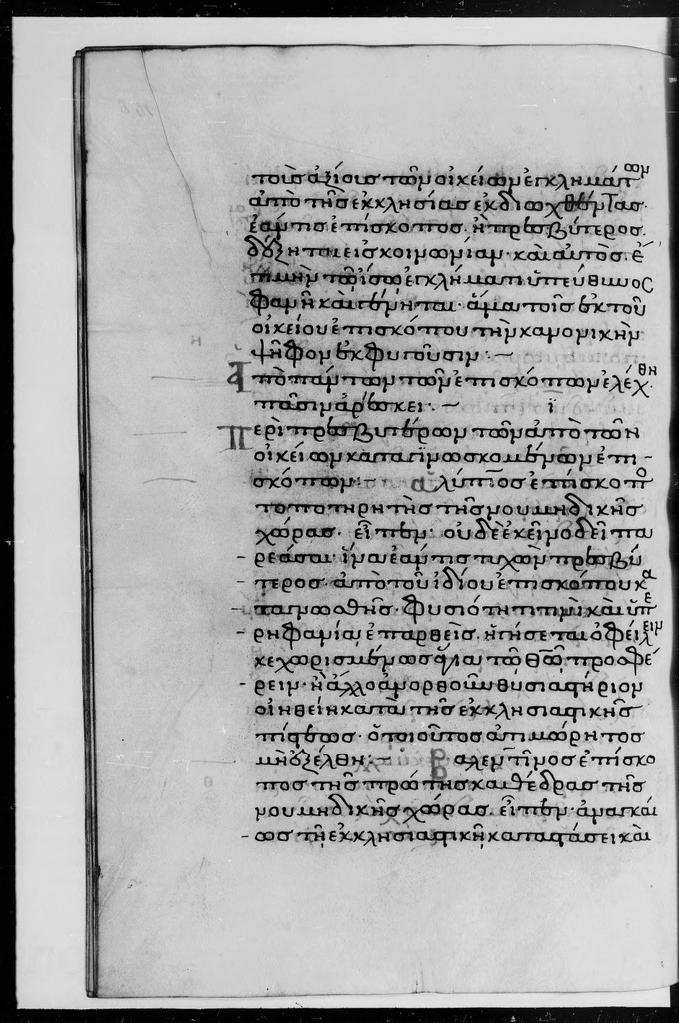 τοῖς ἀξίοις τῶν οἰκείων ἐγκλημάτων
ἀπὸ τῆς ἐκκλησίας ἐκδιωχθέντας·
ἐάν τις ἐπίσκοπος· ἢ πρεσβύτερος·
δέξηται εἰς κοινωνίαν· καὶ αὐτὸς·
τῷ ἴσῳ ἐγκλήματι ὑπεύθυνος
φανῇ καὶ γένηται· ἅμα τοῖς ἐκ τοῦ
οἰκείου ἐπισκόπου τὴν κανονικὴν
ψῆφον ἐκφυγοῦσιν :—
ἀπὸ πάντων τῶν ἐπισκόπων ἐλέχθη·
πᾶσιν ἀρέσκει :— ϊ
Περὶ πρεσβυτέρων τῶν ἀπὸ τῶν
οἰκείων καταγινωσκομένων ἐπι-
σκόπων :— ἀλύπιος ἐπίσκοπο
τοποτηρητὴς τῆς νουμηδικῆς
χώρας· εἶπεν· οὐδὲ ἐκεῖνο δεῖ πα
ρεάσαι· ἵνα ἐάν τις τυχὸν πρεσβύ
τερος· ἀπὸ τοῦ ἰδίου ἐπισκόπου κα
ταγνωσθῇς· φυσιότητί τινι καὶ ὑπε
ρηφανίᾳ ἐπαρθεὶς· ἡγήσεται ὀφείλειν
κεχωρισμένως ἅγια τῷ θῶ προσφέ
ρειν· ἢ ἄλλο ἀνορθοῦν θυσιαστήριον
οἰηθείη κατὰ τῆς ἐκκλησιαστικῆς
πίστεως· ὁ τοιοῦτος ἀτιμώρητος
μὴ ἐξέλθῃ :— βαλεντῖνος ἐπίσκο
πος τῆς πρώτης καθέδρας τῆς
νουμηδικῆς χώρας· εἶπεν· ἀναγκαί
ως τῇ ἐκκλησιαστικῇ καταστάσει καὶ